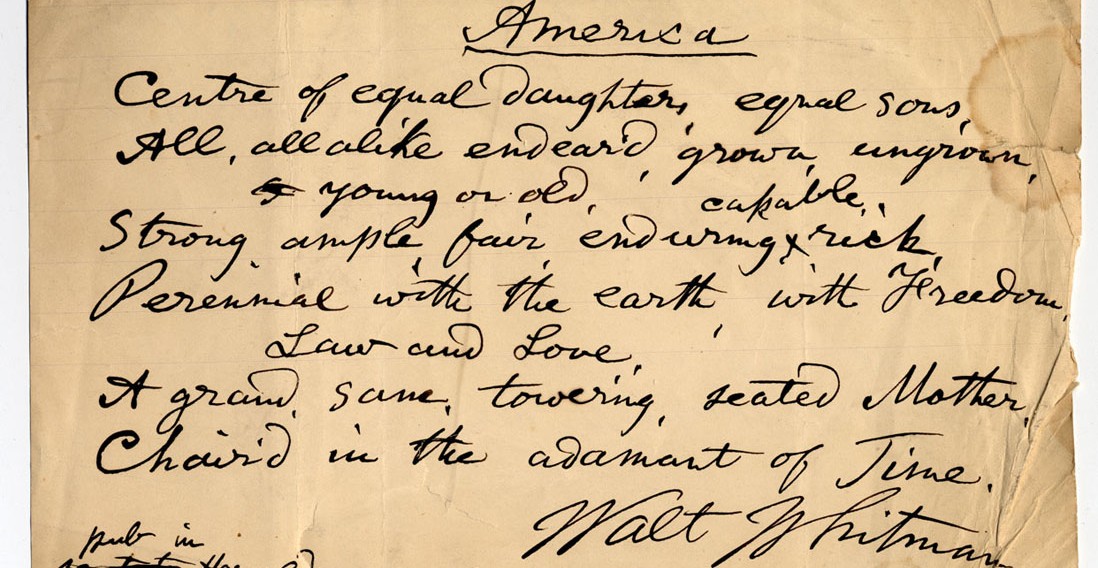 America
Centre of equal daughters, equal sons,
All, all alike endear'd, grown, ungrown,
young or old,
capable,
Strong, ample, fair, enduring, rich,
Perennial with the earth, with Freedom,
Law and Love,
A grand, sane, towering, seated Mother,
Chair'd in the adamant of Time.
Walt Whitman
pub in